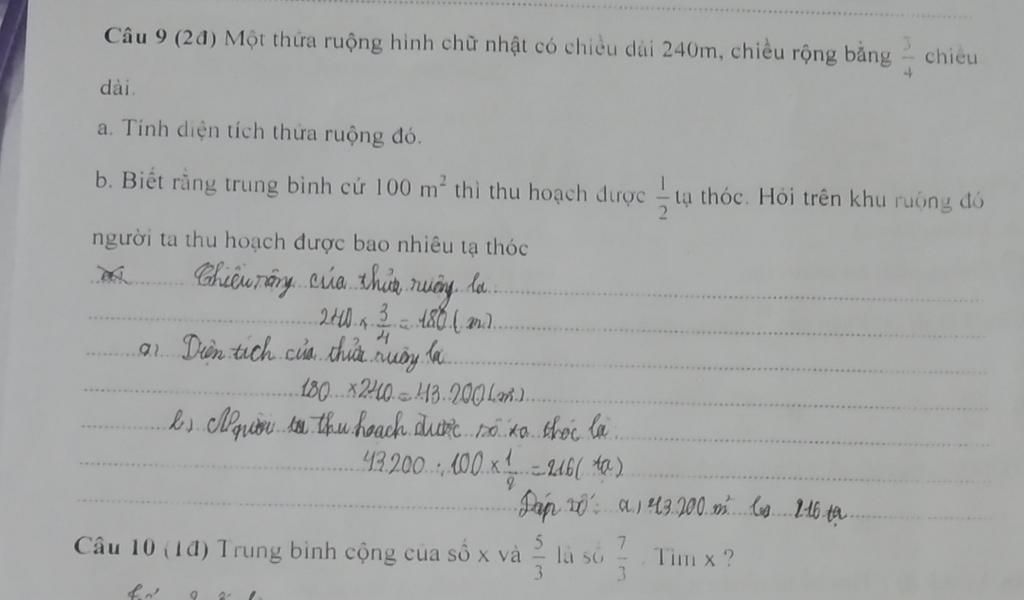 Câu 9 (2đ) Một thửa ruộng hình chữ nhật có chiều dài 240m, chiều rộng bằng 3/4 chiều
dài.
a. Tính diện tích thửa ruộng đó.
b. Biết rằng trung bình cứ 100 m² thì thu hoạch được 1/2 tạ thóc. Hỏi trên khu ruộng đó
người ta thu hoạch được bao nhiêu tạ thóc
Chiều rộng của thửa ruộng là
240 x 3/4 = 180 (m)
a) Diện tích của thửa ruộng là
180 x 240 = 43.200 (m²)
b) Người ta thu hoạch được số tạ thóc là
43.200 : 100 x 1/2 = 216 (tạ)
Đáp số: a) 43.200 m² b) 216 tạ
Câu 10 (1đ) Trung bình cộng của số x và 5/3 là số 7/3. Tìm x ?